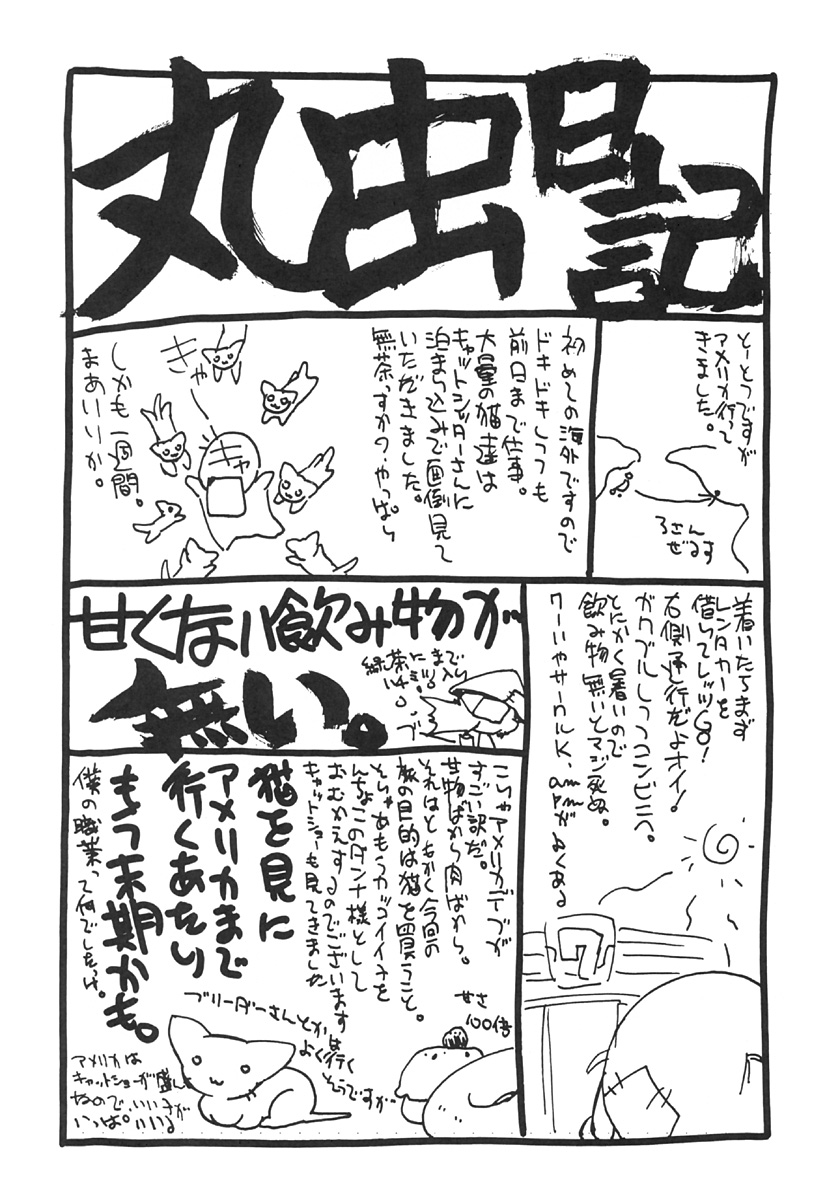 丸虫日記
とーとつですが
アメリカ行って
きました。
ろさん
ぜるす
初めての海外ですので
ドキドキしつつも
前日まで仕事。
大量の猫達は
キャットシッターさんに
泊まり込みで面倒見て
いただきました。
無茶っすかの、やっぱり
きゃー
キャ
しかも一週間。
まあいいか。
着いたらまず
レンタカーを
借りてレッツGO!
右側通行だよオイ!
ガクブルしつつコンビニへ。
とにかく暑いので
飲み物無いとマジ死ぬ。
7-11やサークルK、ampmがよくある
7
甘くない飲み物が
無い。
緑茶にまで
ハチミツ入り
こりゃアメリカデーブが
すごい訳だ。
甘物ばかり肉ばかり。
それはともかく今回の
旅の目的は猫を買うこと。
そりゃあもうカッコイイ
んちょこのダンナ様として
おむかえするのでございます
キャットショーも見てきました
猫を見に
アメリカまで
行くあたり
もう末期かも。
僕の職業って何でしたっけ。
甘さ
100倍
ブリーダーさんとかは
よく行く
そうですが
アメリカは
キャットショーが盛ん
なので、いいコが
いっぱいいる